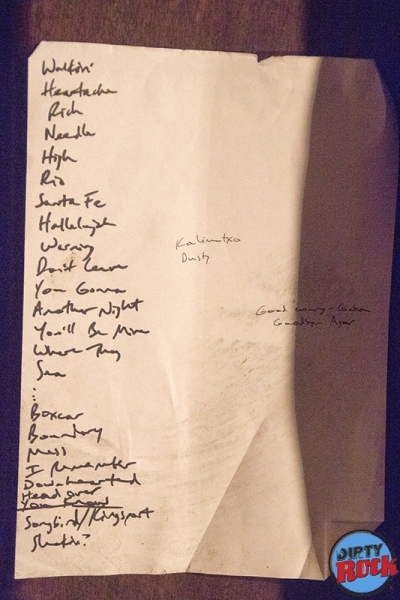 Walkin'
Heartache
Rich
Needle
High
Rio
Santa Fe
Hallelujah
Warning
Don't Leave
You Gonna
Another Night
You'll Be Mine
Where They
Sea
Boxcar
Boundary
Mess
I Remember
Downhearted
Head over
You Know
Songbird/Kingsport
Shakin?
Kalimotxo
Dusty
Good
Goodbye Again
DIRTY
Rock